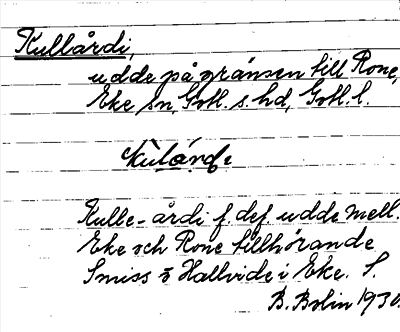 Kullårdi,
udde på gränsen till Rone,
Eke sn, Gotl. s. hd, Gotl. l.
kùlárdɩ
Kulle-årdi f. def. udde mell.
Eke och Rone tillhörande
Smiss o Hallvide i Eke. S.
B. Bolin 1930.